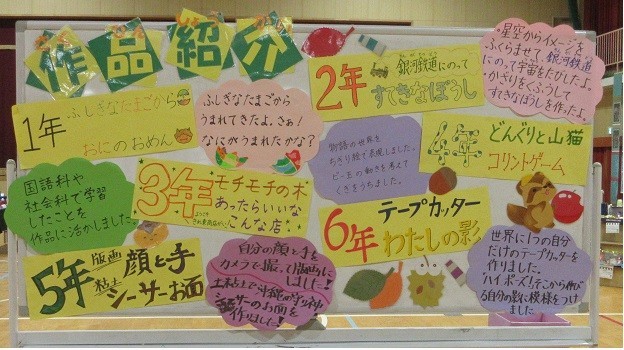 作品紹介
1年
ふしぎなたまごから
おにのおめん
ふしぎなたまごから
うまれてきたよ。さぁ!
なにがうまれたかな?
2年
銀河鉄道にのって
すてきなぼうし
星空からイメージを
ふくらませて、銀河鉄道
にのって宇宙をたびしたよ。
かざりをくふうして
すてきなぼうしを作ったよ。
国語科や
社会科で学習
したことを
作品に活かしました。
3年
モチモチの木
あったらいいな
こんな店
物語の世界を
ちぎり絵で表現しました。
ビー玉の動きを考えて
くぎをうちました。
4年
どんぐりと山猫
コリントゲーム
5年
版画
顔と手
粘土
シーサーお面
自分の顔と手を
カメラで撮って版画に
しました!
土粘土で沖縄の守り神
シーサーのお面を
作りました!
6年
テープカッター
わたしの影
世界に1つの自分
だけのテープカッターを
作りました。
ハイポーズ!そこから伸び
る自分の影に模様をつけ
ました